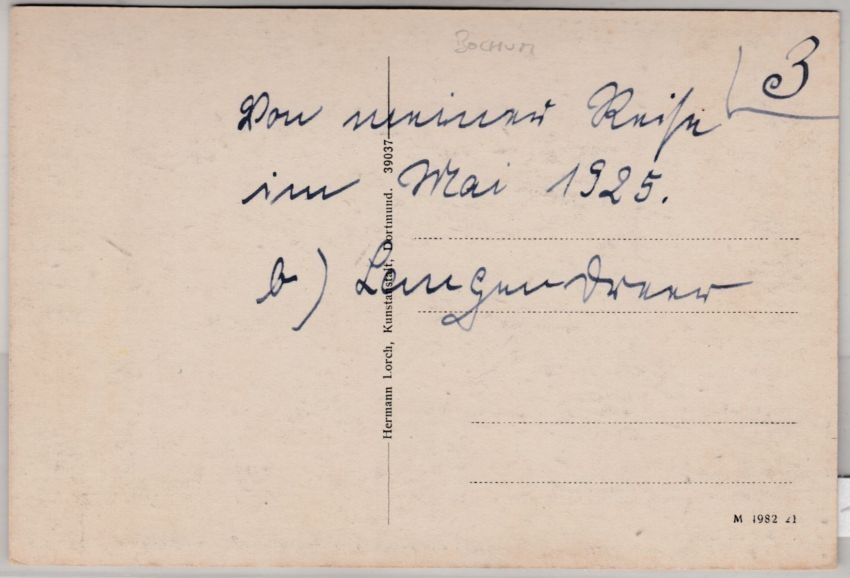 BOCHUM
3
Von meiner Reise
im Mai 1925.
b) Langendreer
Hermann Lorch, Kunstanstalt, Dortmund. 39037
M 1982 21